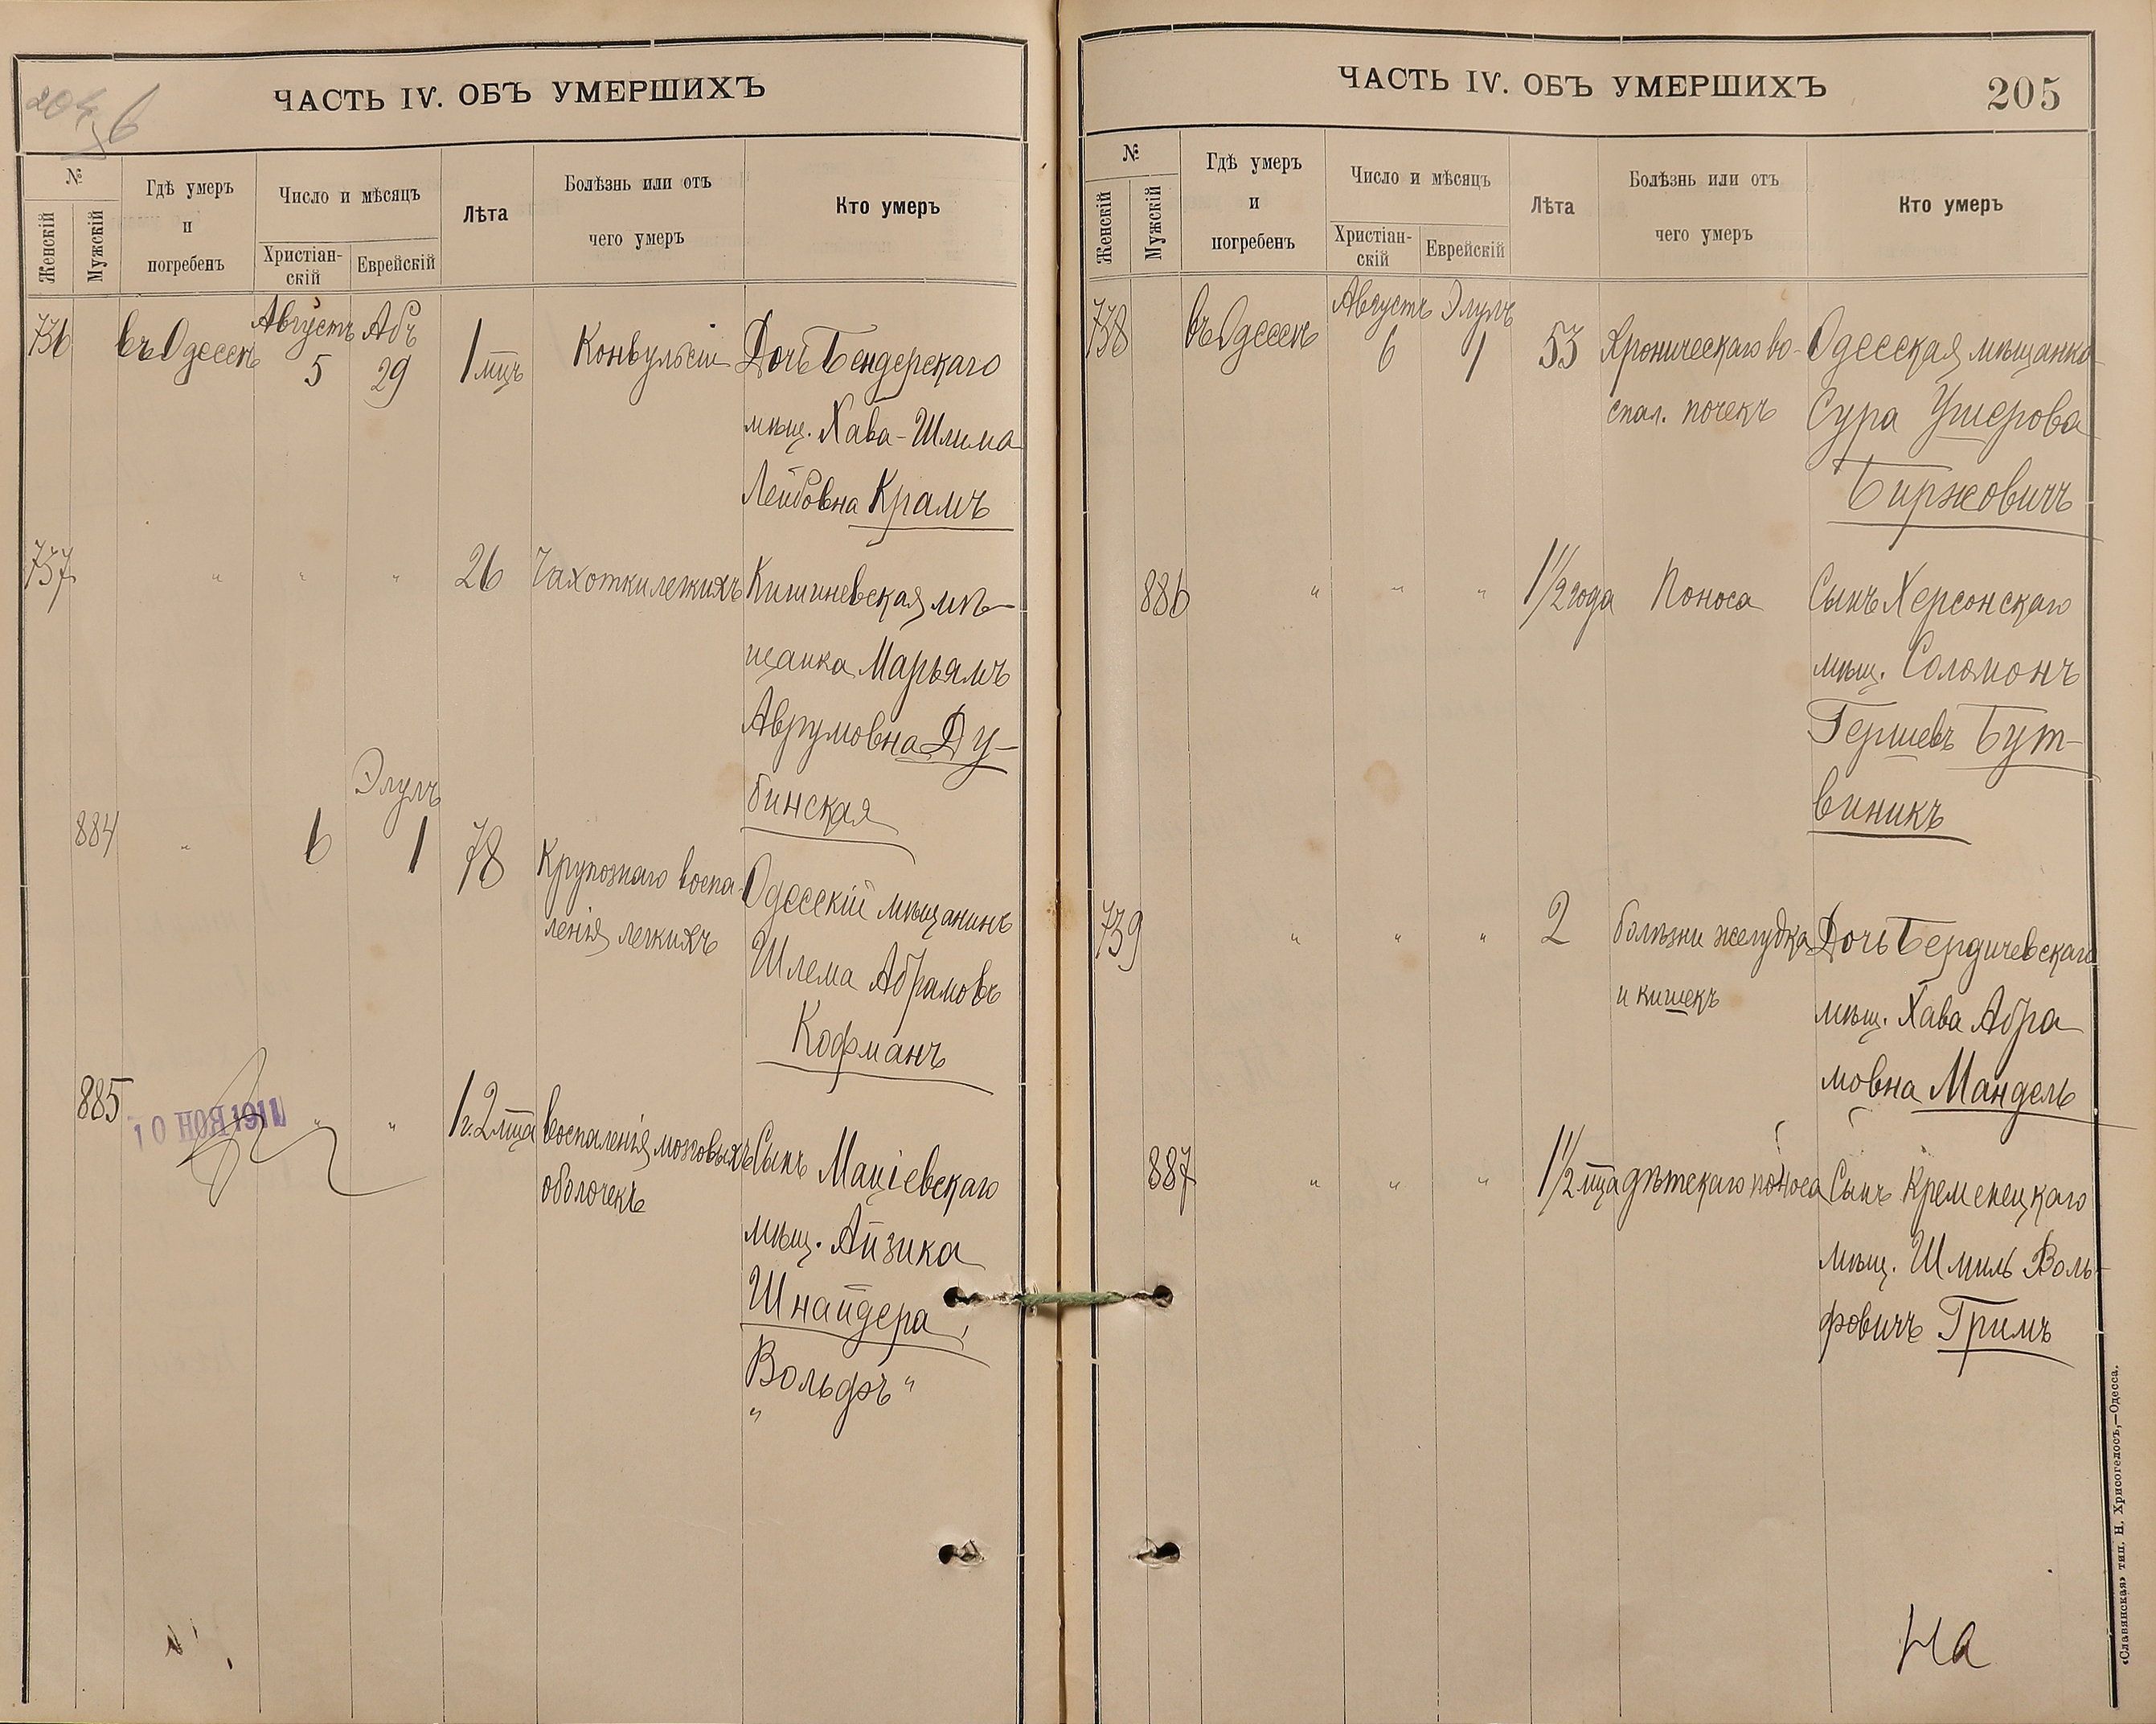 204 б
ЧАСТЬ IV. ОБЪ УМЕРШИХЪ
№
Женскій
Мужскій
Гдѣ умеръ
и
погребенъ
Число и мѣсяцъ
Христіан-
скій
Еврейскій
Лѣта
Болѣзнь или отъ
чего умеръ
Кто умеръ
736 въ Одессѣ Августъ 5 Абъ 29 1 мцъ Конвульсіи Дочь Бендерскаго
мѣщ. Хава-Шлима
Лейбовна Крамъ
737 " " " 26 Чахотки легкихъ Кишиневская мѣ-
щанка Марьямъ
Аврумовна Ду-
бинская
Элулъ
884 " 6 1 78 Крупознаго воспа-
ленія легкихъ
Одесскій мѣщанинъ
Шлема Абрамовъ
Кофманъ
885 " " 1 г. 2 мца Воспаленія мозговыхъ
оболочекъ
Сынъ Маціевскаго
мѣщ. Айзика
Шнайдера,
Вольфъ "
"
10 НОЯ 1911
ЧАСТЬ IV. ОБЪ УМЕРШИХЪ
205
№
Женскій
Мужскій
Гдѣ умеръ
и
погребенъ
Число и мѣсяцъ
Христіан-
скій
Еврейскій
Лѣта
Болѣзнь или отъ
чего умеръ
Кто умеръ
738 въ Одессѣ Августъ 6 Элулъ 1 53 Хроническаго во-
спал. почекъ
Одесская мѣщанка
Сура Ушерова
Биржовичъ
886 " " " 1 1/2 года Поноса Сынъ Херсонскаго
мѣщ. Соломонъ
Гершевъ Бут-
виникъ
739 " " " 2 болѣзни желудка
и кишекъ
Дочь Бердичевскаго
мѣщ. Хава Абра
мовна Мандель
887 " " " 1 1/2 мца дѣтскаго поноса Сынъ Кременецкаго
мѣщ. Шмиль Воль-
фовичъ Гримъ
На
«Славянская» тип. Н. Хрисогелосъ,—Одесса.